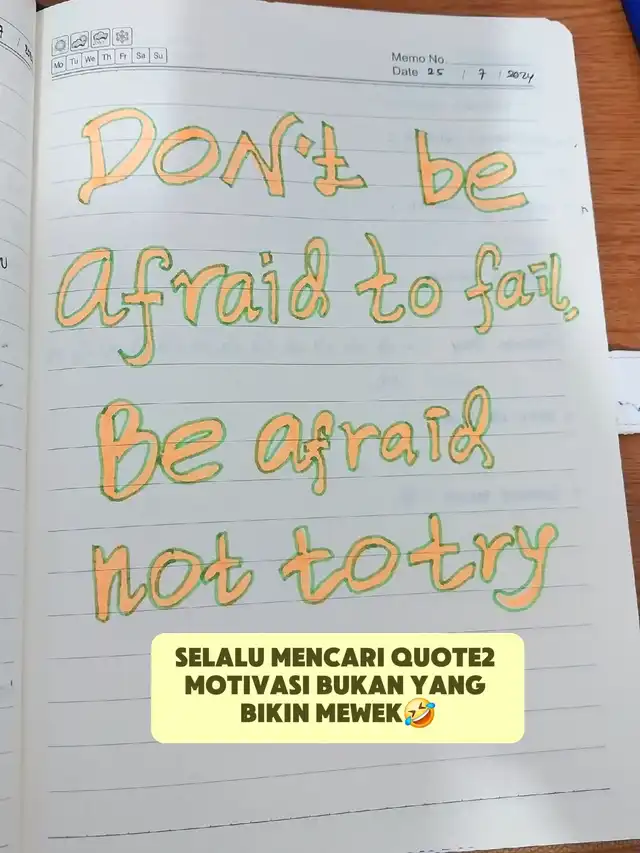 Mo Tu We Th Fr Sa Su
Memo No.
Date 25 / 7 / 2024
DON't be
afraid to fail,
Be afraid
not to try
SELALU MENCARI QUOTE2
MOTIVASI BUKAN YANG
BIKIN MEWEK🤣